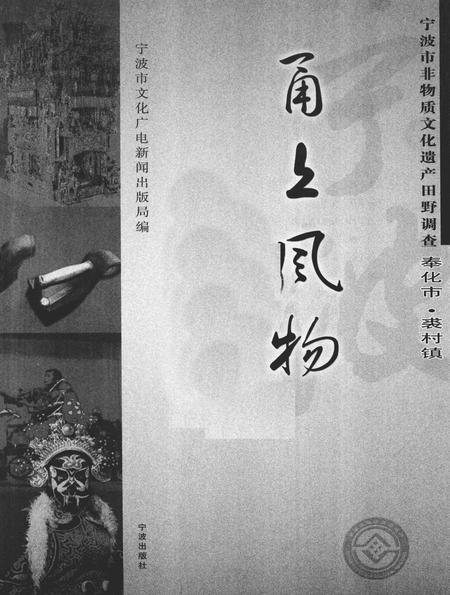 宁波市非物质文化遗产田野调查 奉化市·裘村镇
甬上风物
宁波市文化广电新闻出版局编
宁波出版社